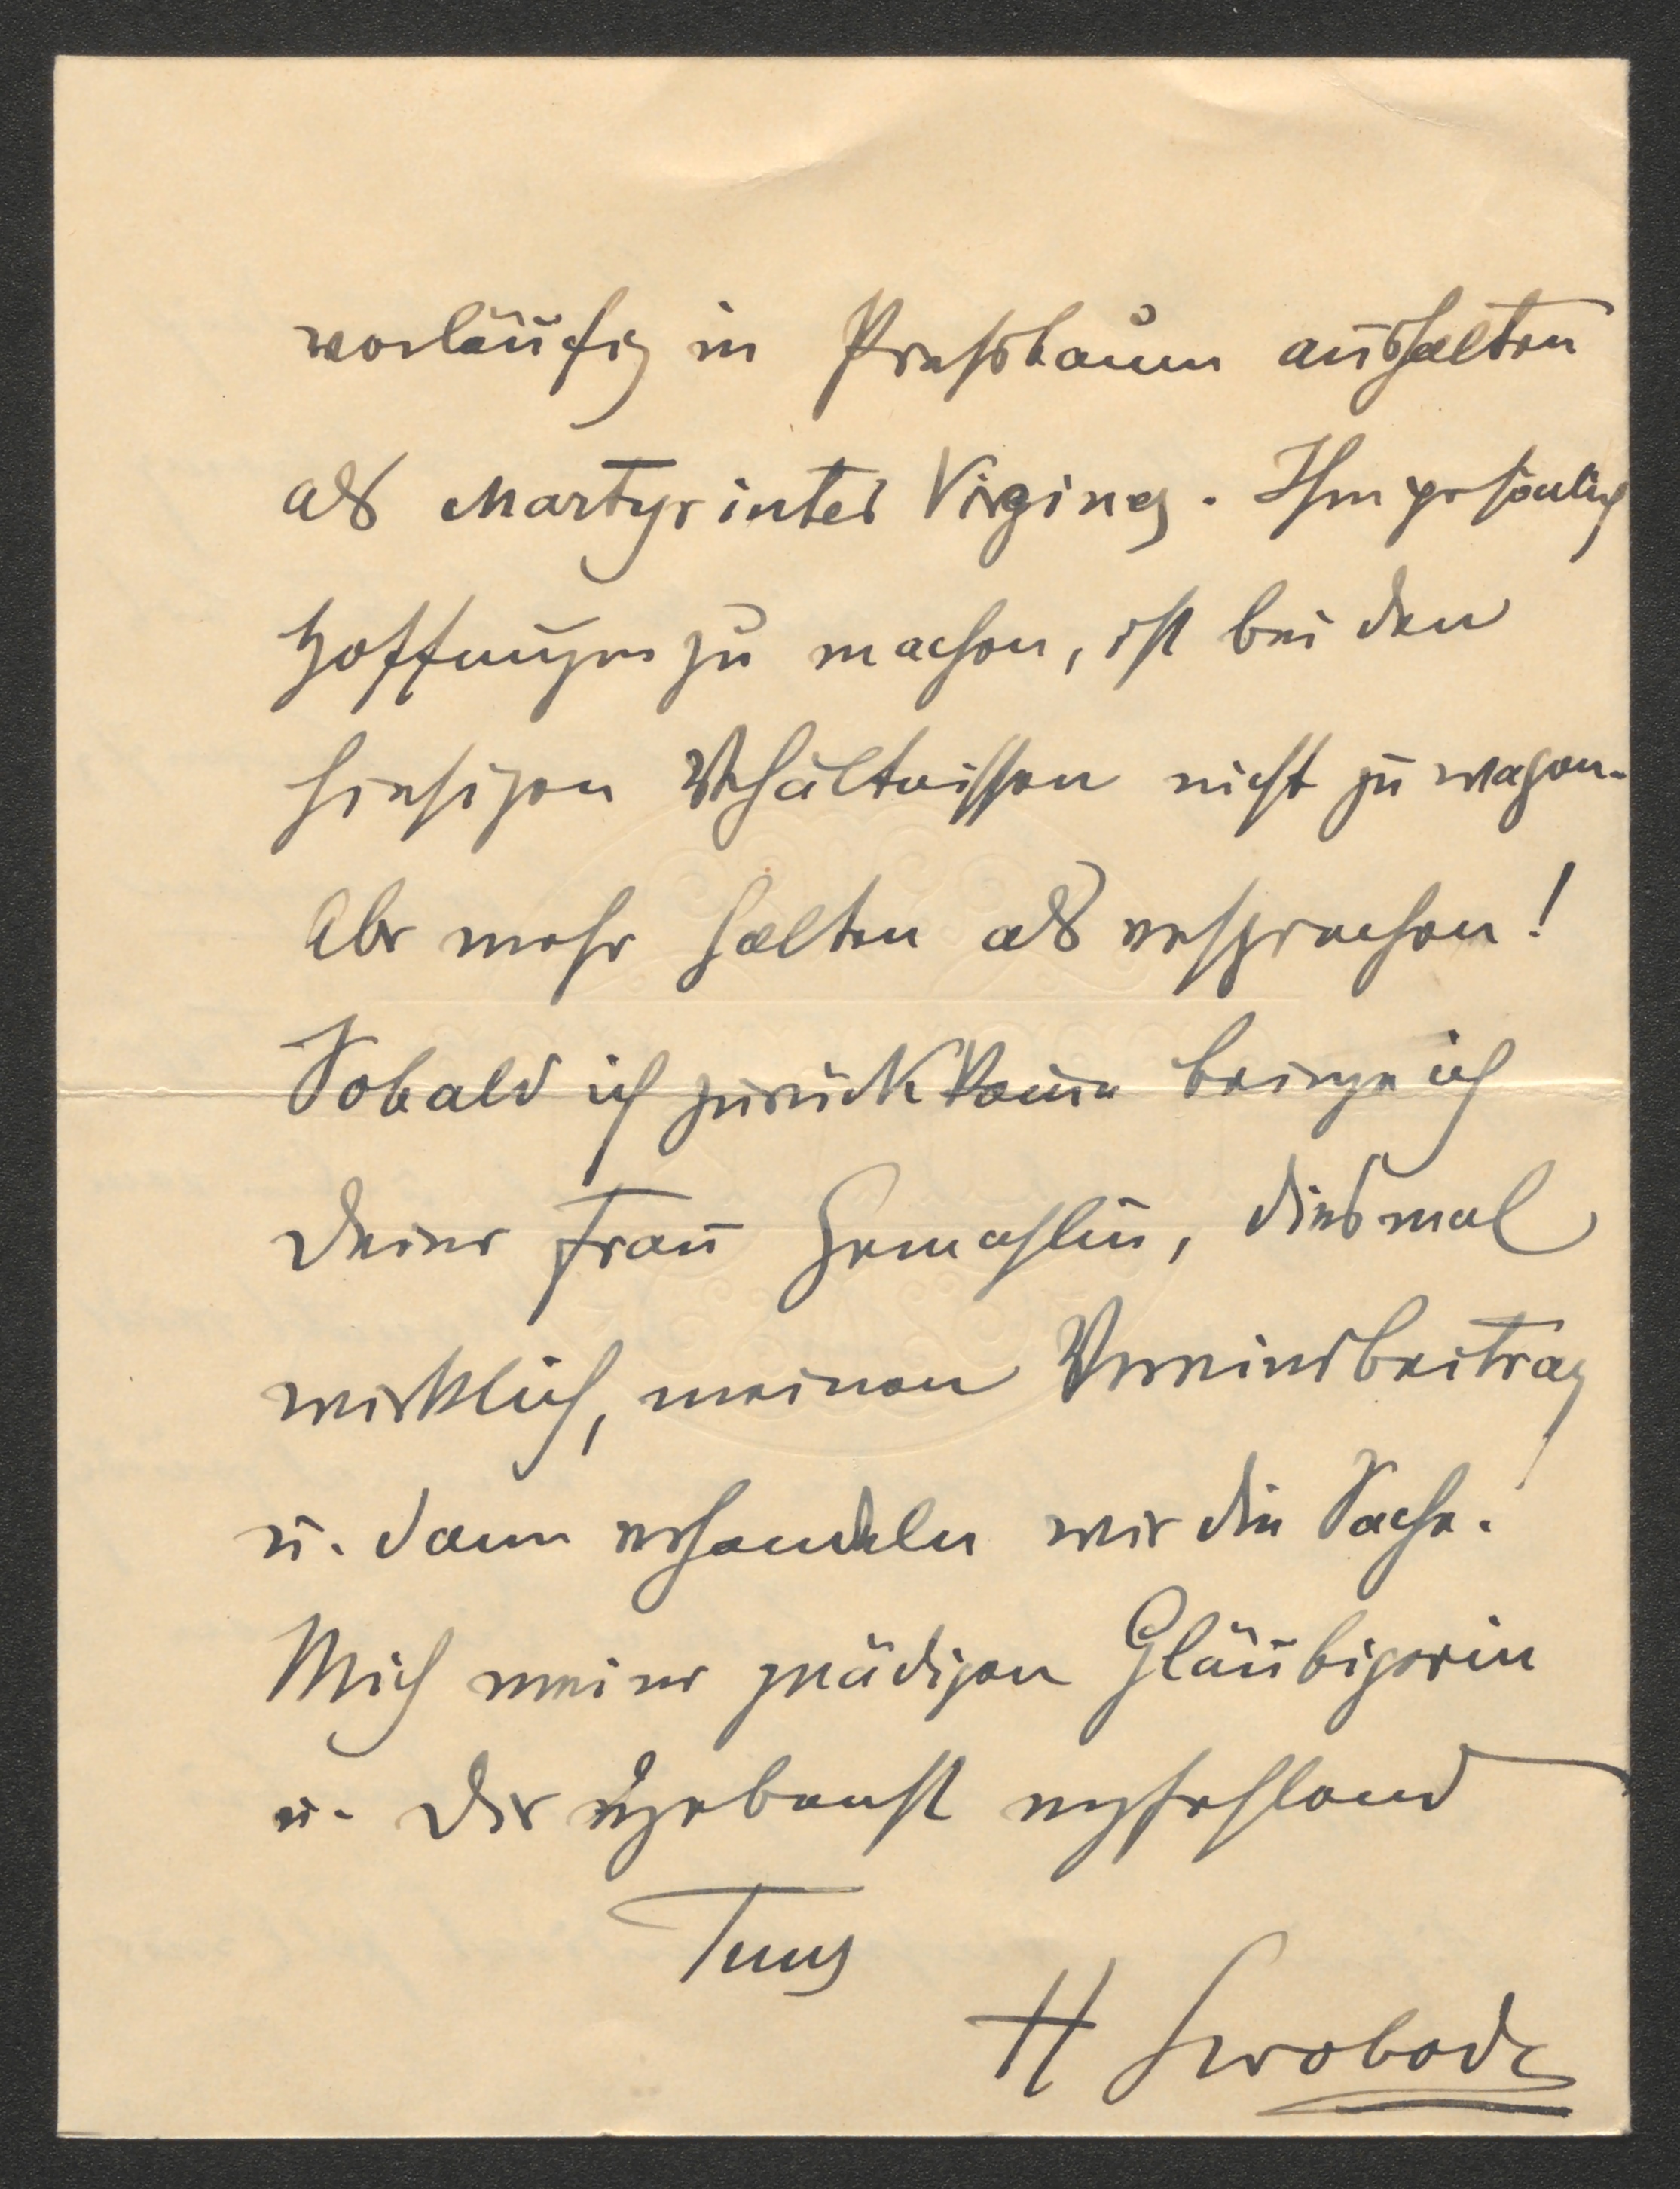 vorläufig in Pressbaum aushalten
als Martyr inter Virgines. Ihm persönlich
Hoffnungen zu machen, ist bei den
hiesigen Verhältnissen nicht zu wagen.
Aber mehr halten als versprechen!
Sobald ich zurückkomme bringe ich
Deiner Frau Gemahlin, diesmal
wirklich, meinen Vereinsbeitrag
u. dann verhandeln wir die Sache.
Mich meiner gnädigen Gläubigerin
u. Dir ergebenst empfehlend
Tuus
H Swoboda